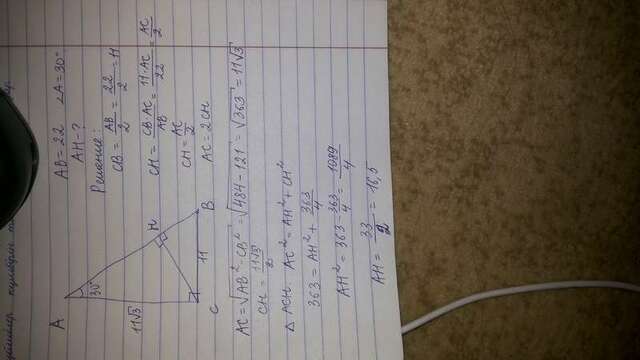 AB = 22 ∠A = 30°
AH - ?
Решение:
CB = AB/2 = 22/2 = 11
CH = CB·AC/AB = 11·AC/22 = AC/2
CH = AC/2
AC = 2CH
A
30°
11√3
H
C
11
B
AC = √AB² - CB² = √484 - 121 = √363 = 11√3
CH = 11√3/2
△ ACH. AC² = AH² + CH²
363 = AH² + 363/4
AH² = 363 - 363/4 = 1089/4
AH = 33/2 = 16,5